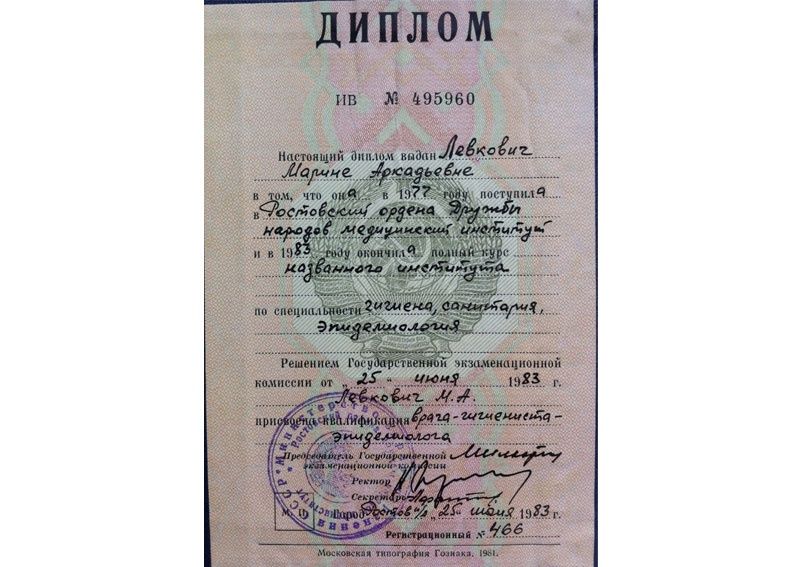 ДИПЛОМ
ИВ № 495960
Настоящий диплом выдан Левкович
Марине Аркадьевне
в том, что она в 1977 году поступила
в Ростовский ордена Дружбы
народов медицинский институт
и в 1983 году окончила полный курс
названного института
по специальности гигиена, санитария,
эпидемиология
Решением Государственной экзаменационной
комиссии от „25" июня 1983 г.
Левкович М.А.
присвоена квалификация врача-гигиениста-
эпидемиолога
Председатель Государственной
экзаменационной комиссии
Ректор
Секретарь
М. П. Город Ростов н/Д „25" июня 1983 г.
Регистрационный № 466
Московская типография Гознака. 1981.